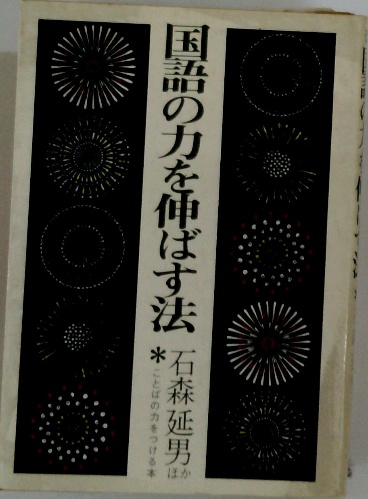 国語の力を伸ばす法
石森延男ほか
＊ことばの力をつける本
国語の力を伸ばす法